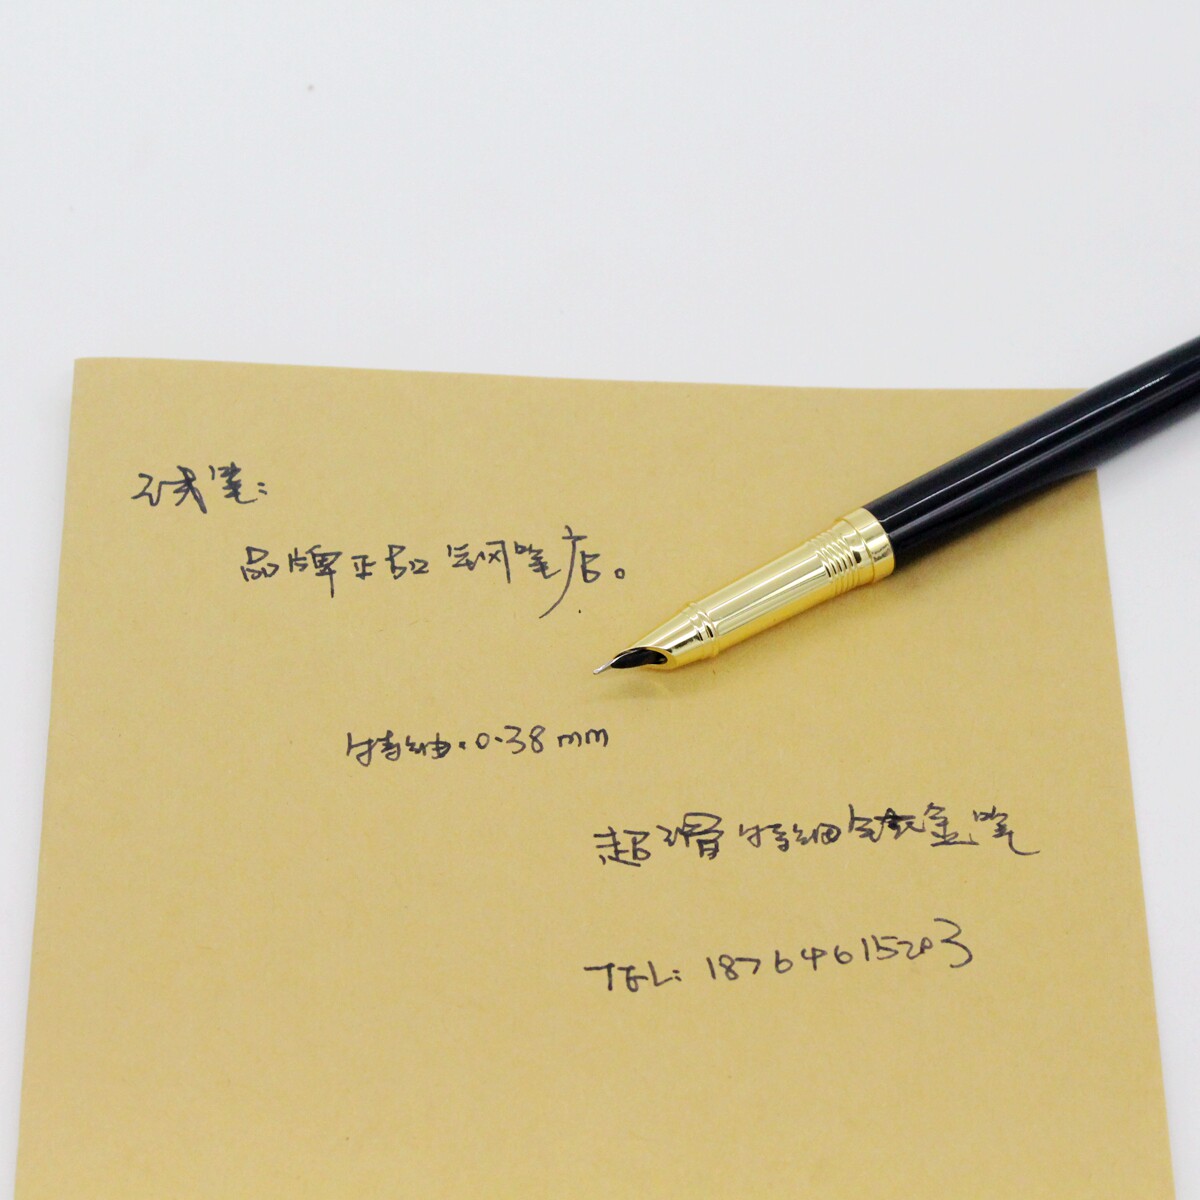 试笔:
品牌正品钢笔店。
特细.0.38mm
超滑特细铱金笔
TEL: 18764615203